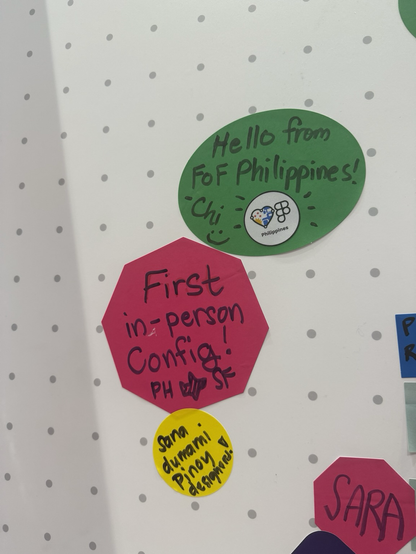 Hello from
FoF Philippines!
Chi
Philippines
First
in-person
Config!
PH SF
Sana
dumami
Pinoy
designers!
SARA
P
R